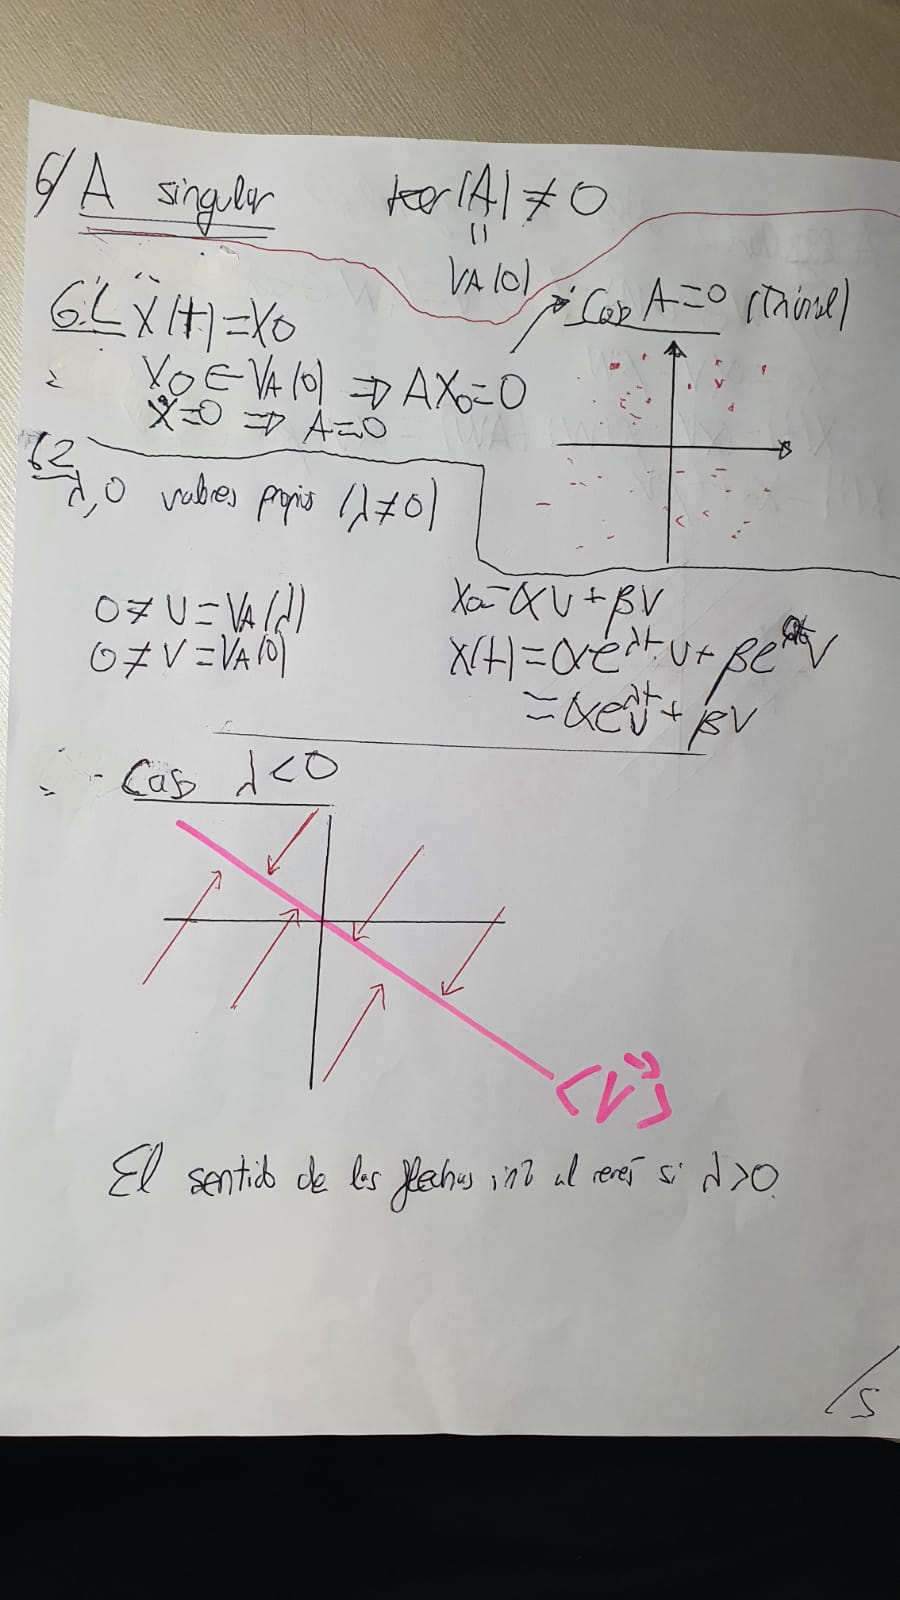 6/ A singular ker(A) ≠ 0
=
V_A(0)
6.1 X(t)=X0
X0 ∈ V_A(0) ⇒ AX0=0
Ẋ=0 ⇒ A=0
Caso A=0 (Trivial)
6.2
λ,0 valores propios (λ≠0)
0≠U=V_A(λ)
0≠V=V_A(0)
X0=αU+βV
X(t)=αe^{λt}U+βe^{0t}V
=αe^{λt}U+βV
- Caso λ<0
<V>
El sentido de las flechas al revés si λ>0.
/5